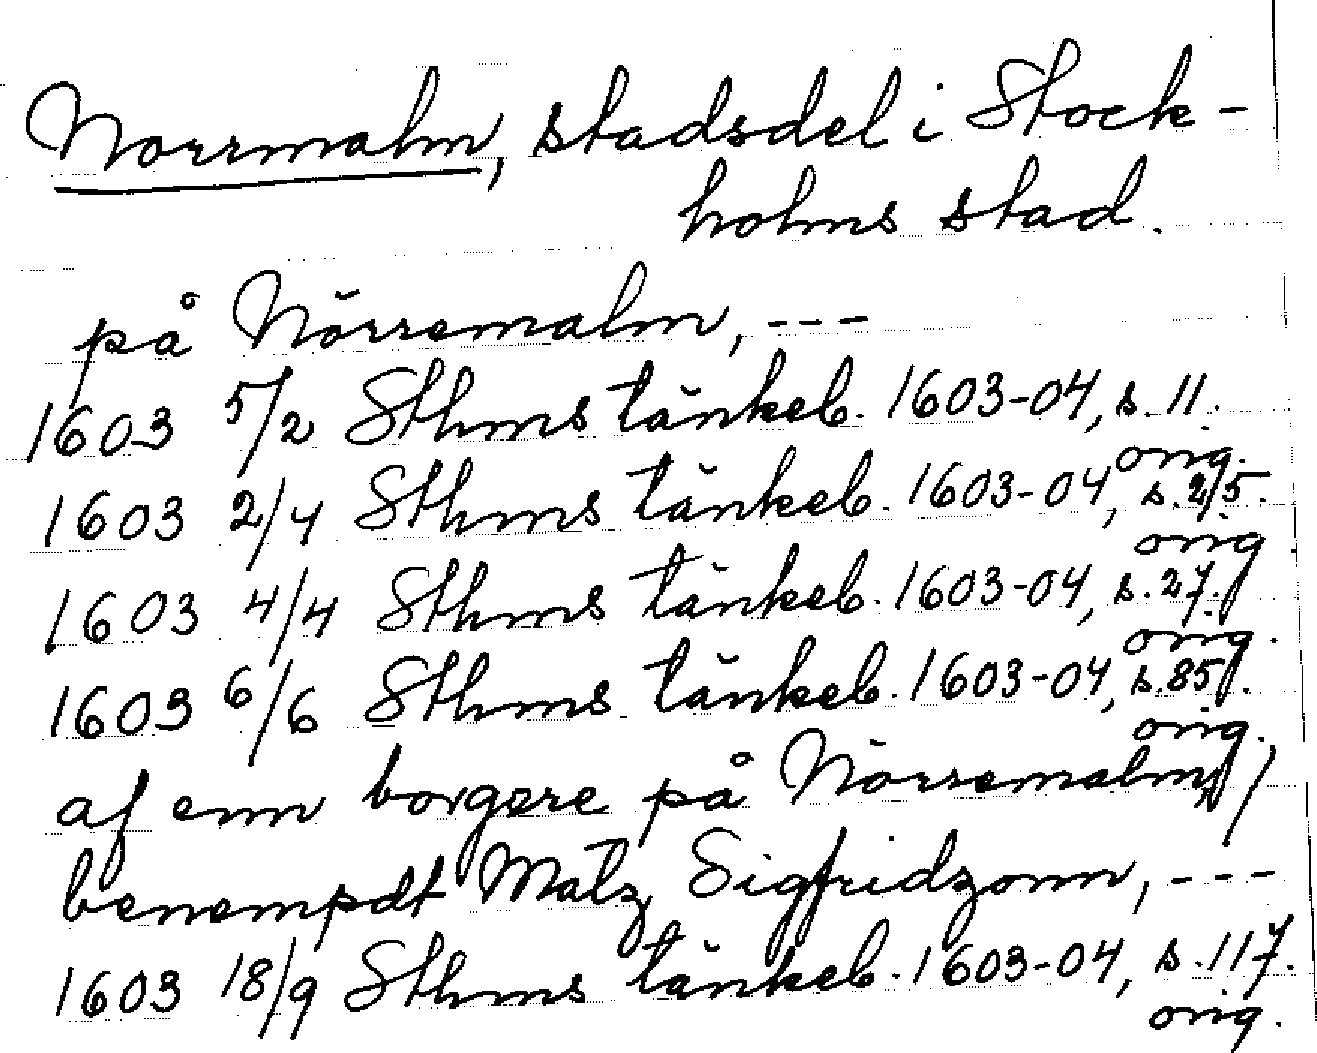 Norrmalm, stadsdel i Stock-
holms stad.
på Nörremalm, ---
1603 5/2 Sthms tänkeb. 1603-04, s. 11.
orig.
1603 2/4 Sthms tänkeb. 1603-04, s. 25.
orig.
1603 4/4 Sthms tänkeb. 1603-04, s. 27.
orig.
1603 6/6 Sthms tänkeb. 1603-04, s. 85.
orig.
af enn borgere på Nörremalm, /
benempdt Matz Sigfridzonn, ---
1603 18/9 Sthms tänkeb. 1603-04, s. 117.
orig.